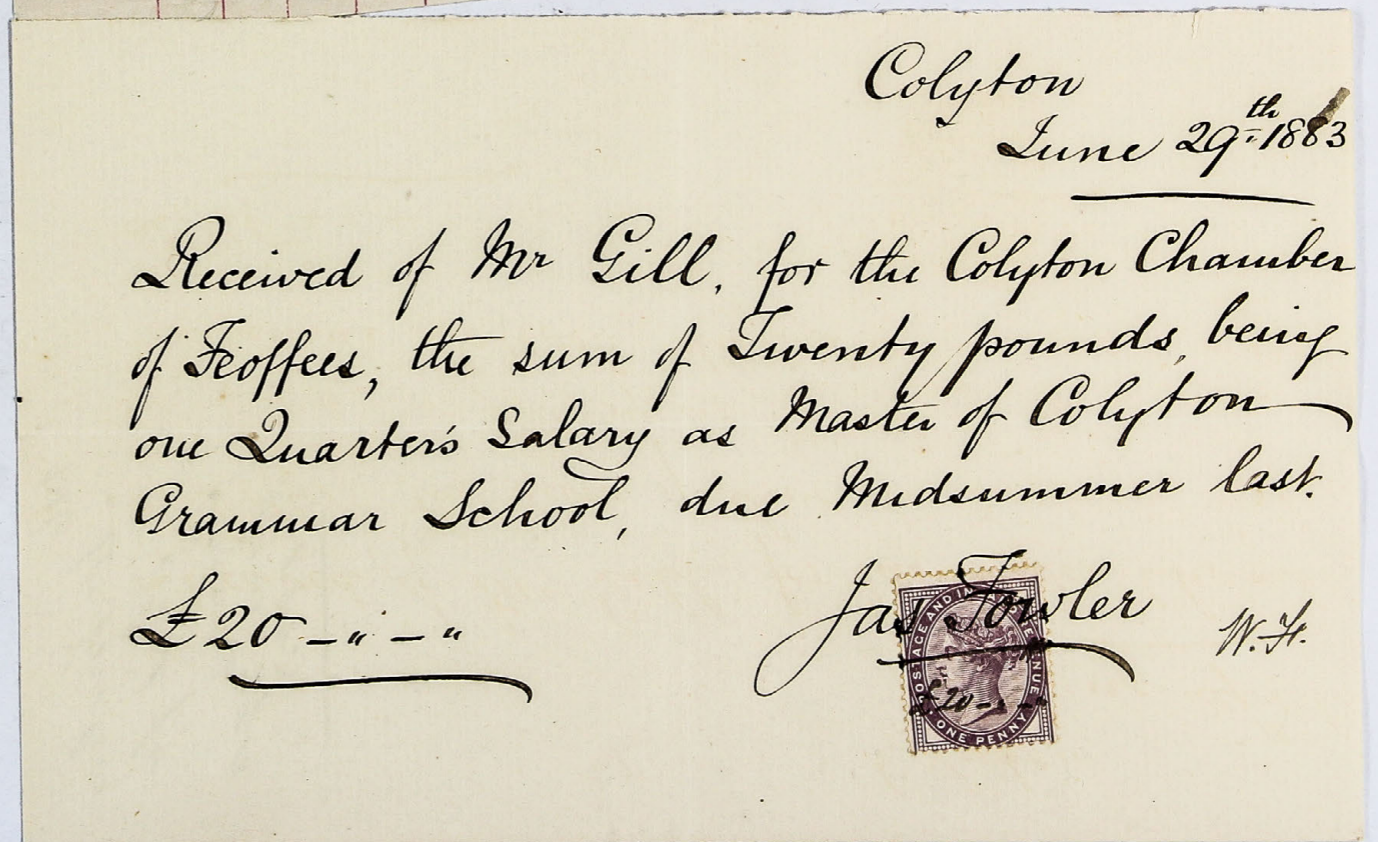 Colyton
June 29th 1883
Received of Mr Gill, for the Colyton Chamber
of Feoffees, the sum of Twenty pounds, being
one Quarter's Salary as Master of Colyton
Grammar School, due Midsummer last.
£20 - " - "
Jas Fowler
W.H.
POSTAGE AND INLAND REVENUE
£20 - " - "
ONE PENNY